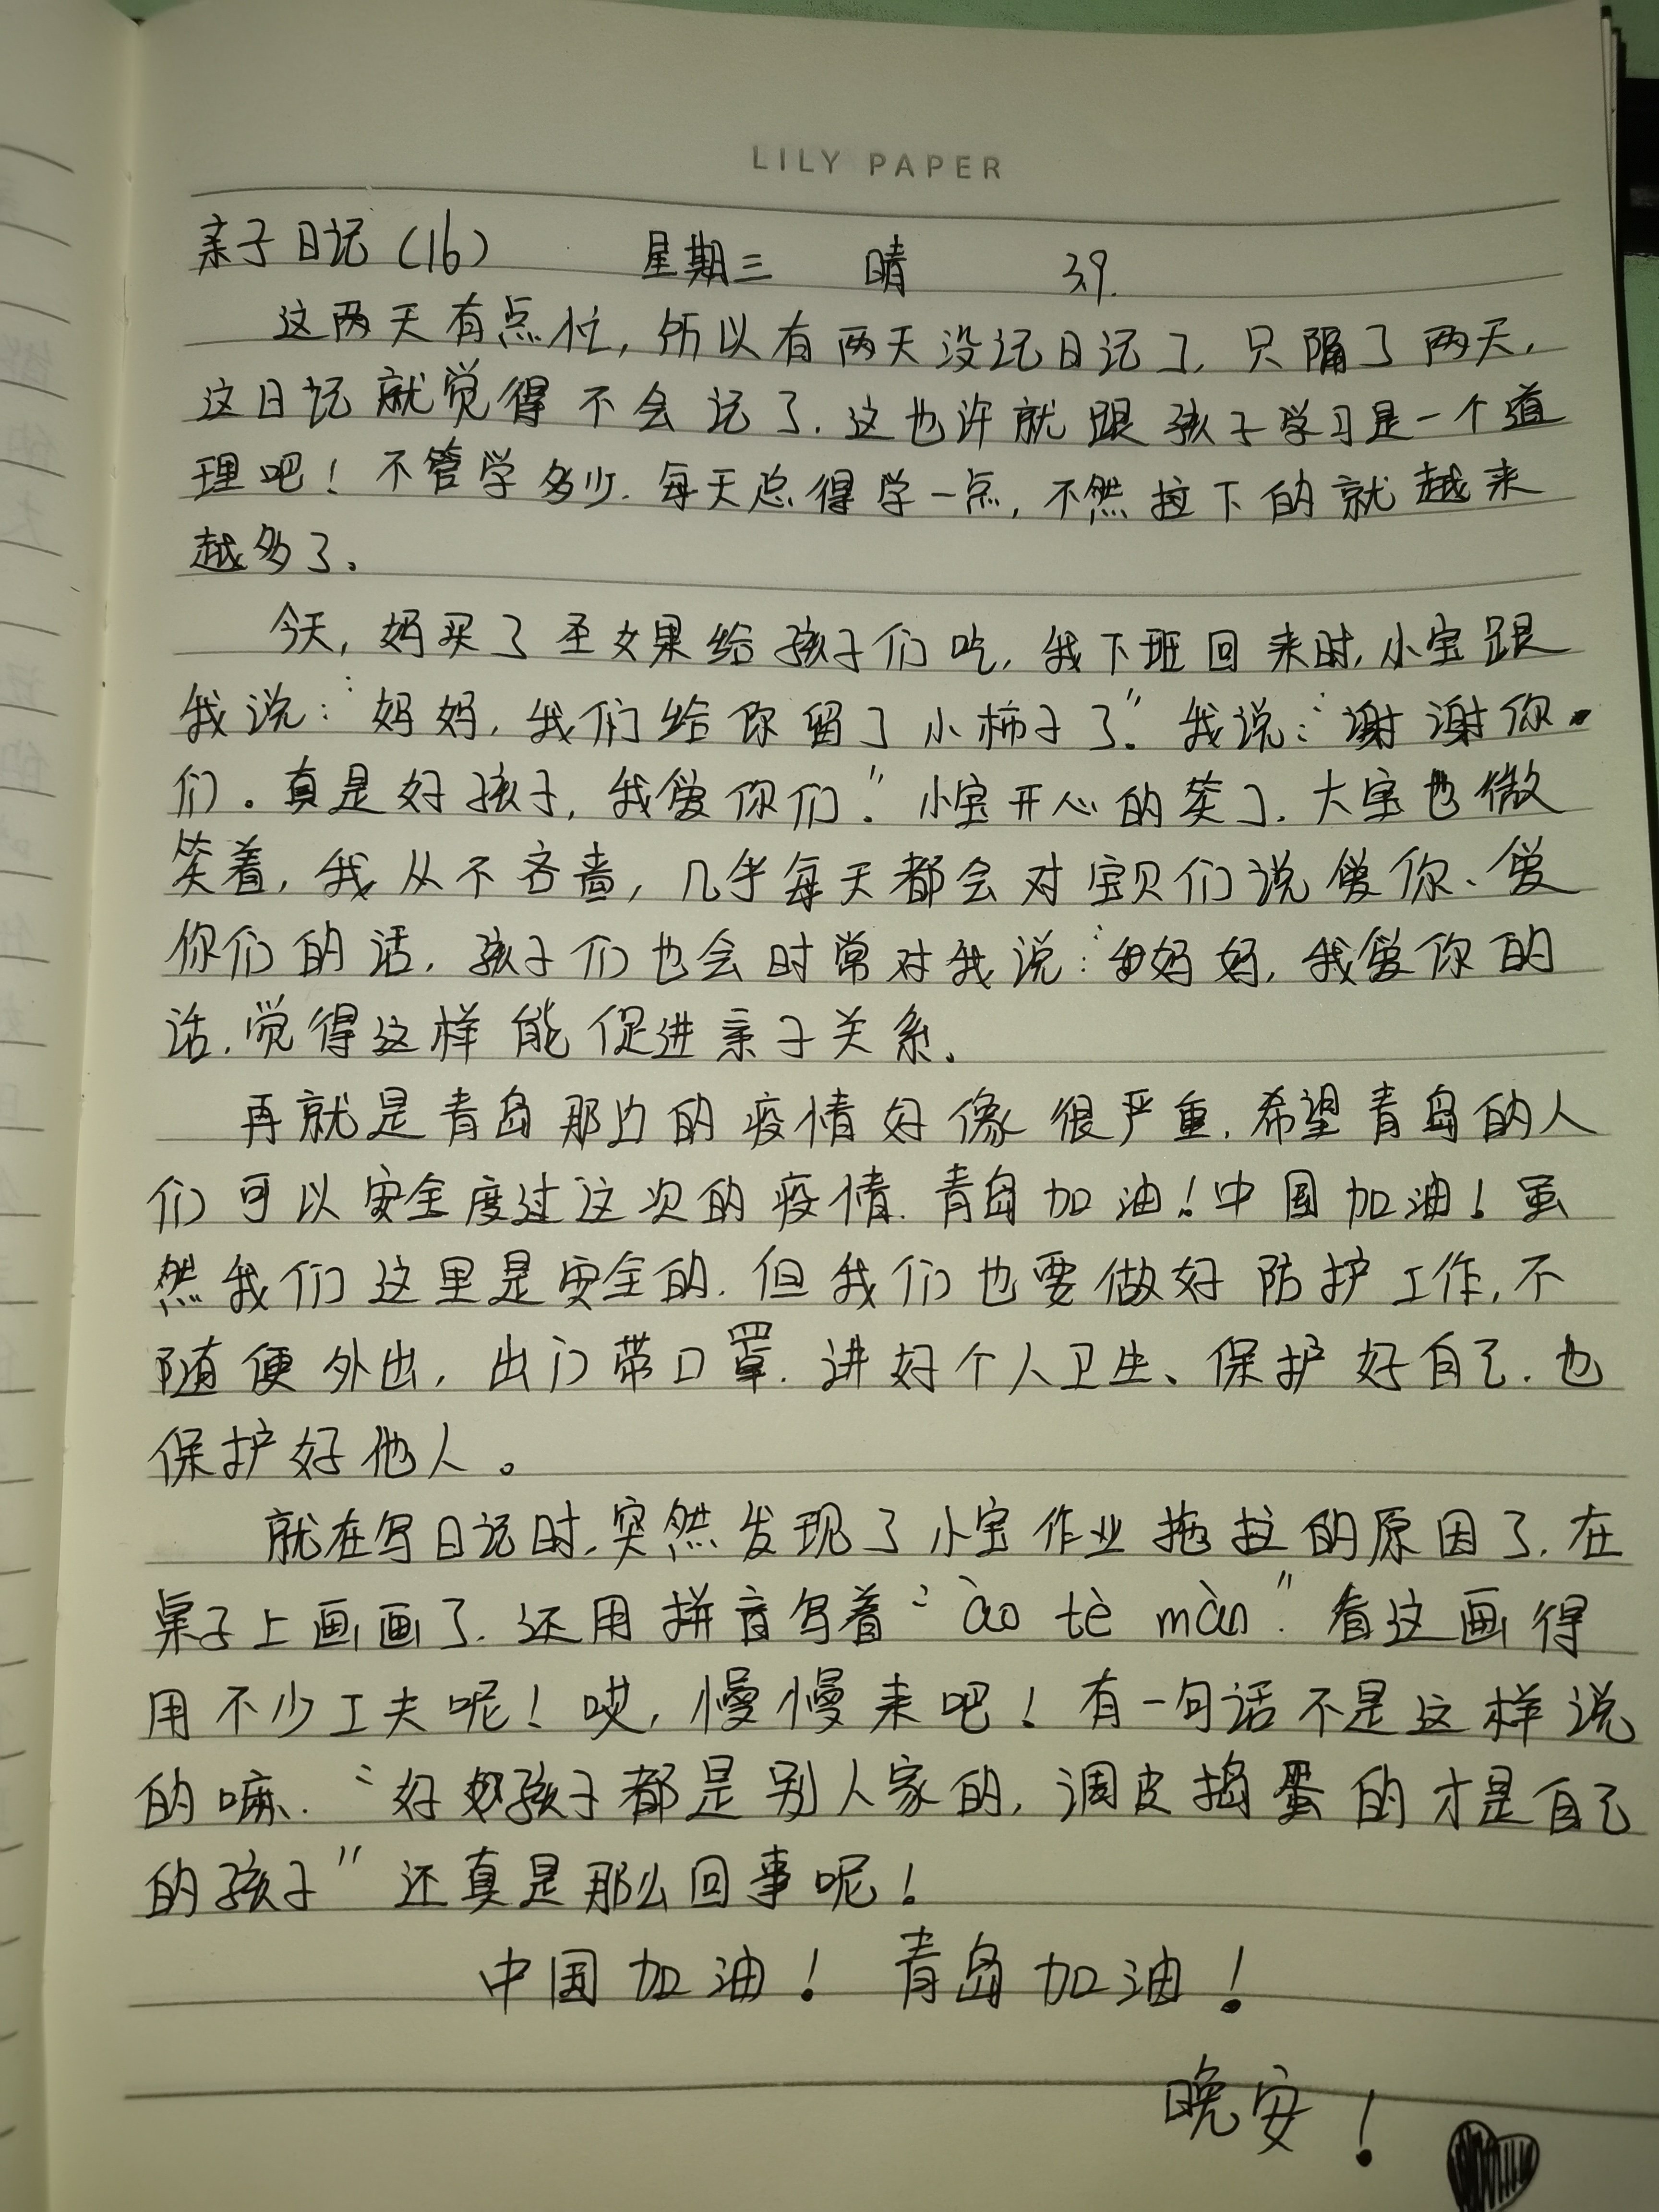 LILY PAPER
亲子日记(16) 星期三 晴 3.9.
这两天有点忙,所以有两天没记日记了.只隔了两天,
这日记就觉得不会记了.这也许就跟孩子学习是一个道
理吧!不管学多少.每天总得学一点,不然拉下的就越来
越多了。
今天,妈买了圣女果给孩子们吃,我下班回来时,小宝跟
我说:“妈妈,我们给你留了小柿子了.”我说:“谢谢你
们。真是好孩子,我爱你们.”小宝开心的笑了.大宝也微
笑着,我从不吝啬,几乎每天都会对宝贝们说爱你、爱
你们的话.孩子们也会时常对我说:“妈妈,我爱你的
话.觉得这样能促进亲子关系。
再就是青岛那边的疫情好像很严重.希望青岛的人
们可以安全度过这次的疫情.青岛加油!中国加油!虽
然我们这里是安全的.但我们也要做好防护工作,不
随便外出,出门带口罩.讲好个人卫生、保护好自己.也
保护好他人。
就在写日记时.突然发现了小宝作业拖拉的原因了.在
桌子上画画了.还用拼音写着“ào tè màn”.看这画得
用不少工夫呢!哎,慢慢来吧!有一句话不是这样说
的嘛.“好孩子都是别人家的,调皮捣蛋的才是自己
的孩子”还真是那么回事呢!
中国加油!青岛加油!
晚安!